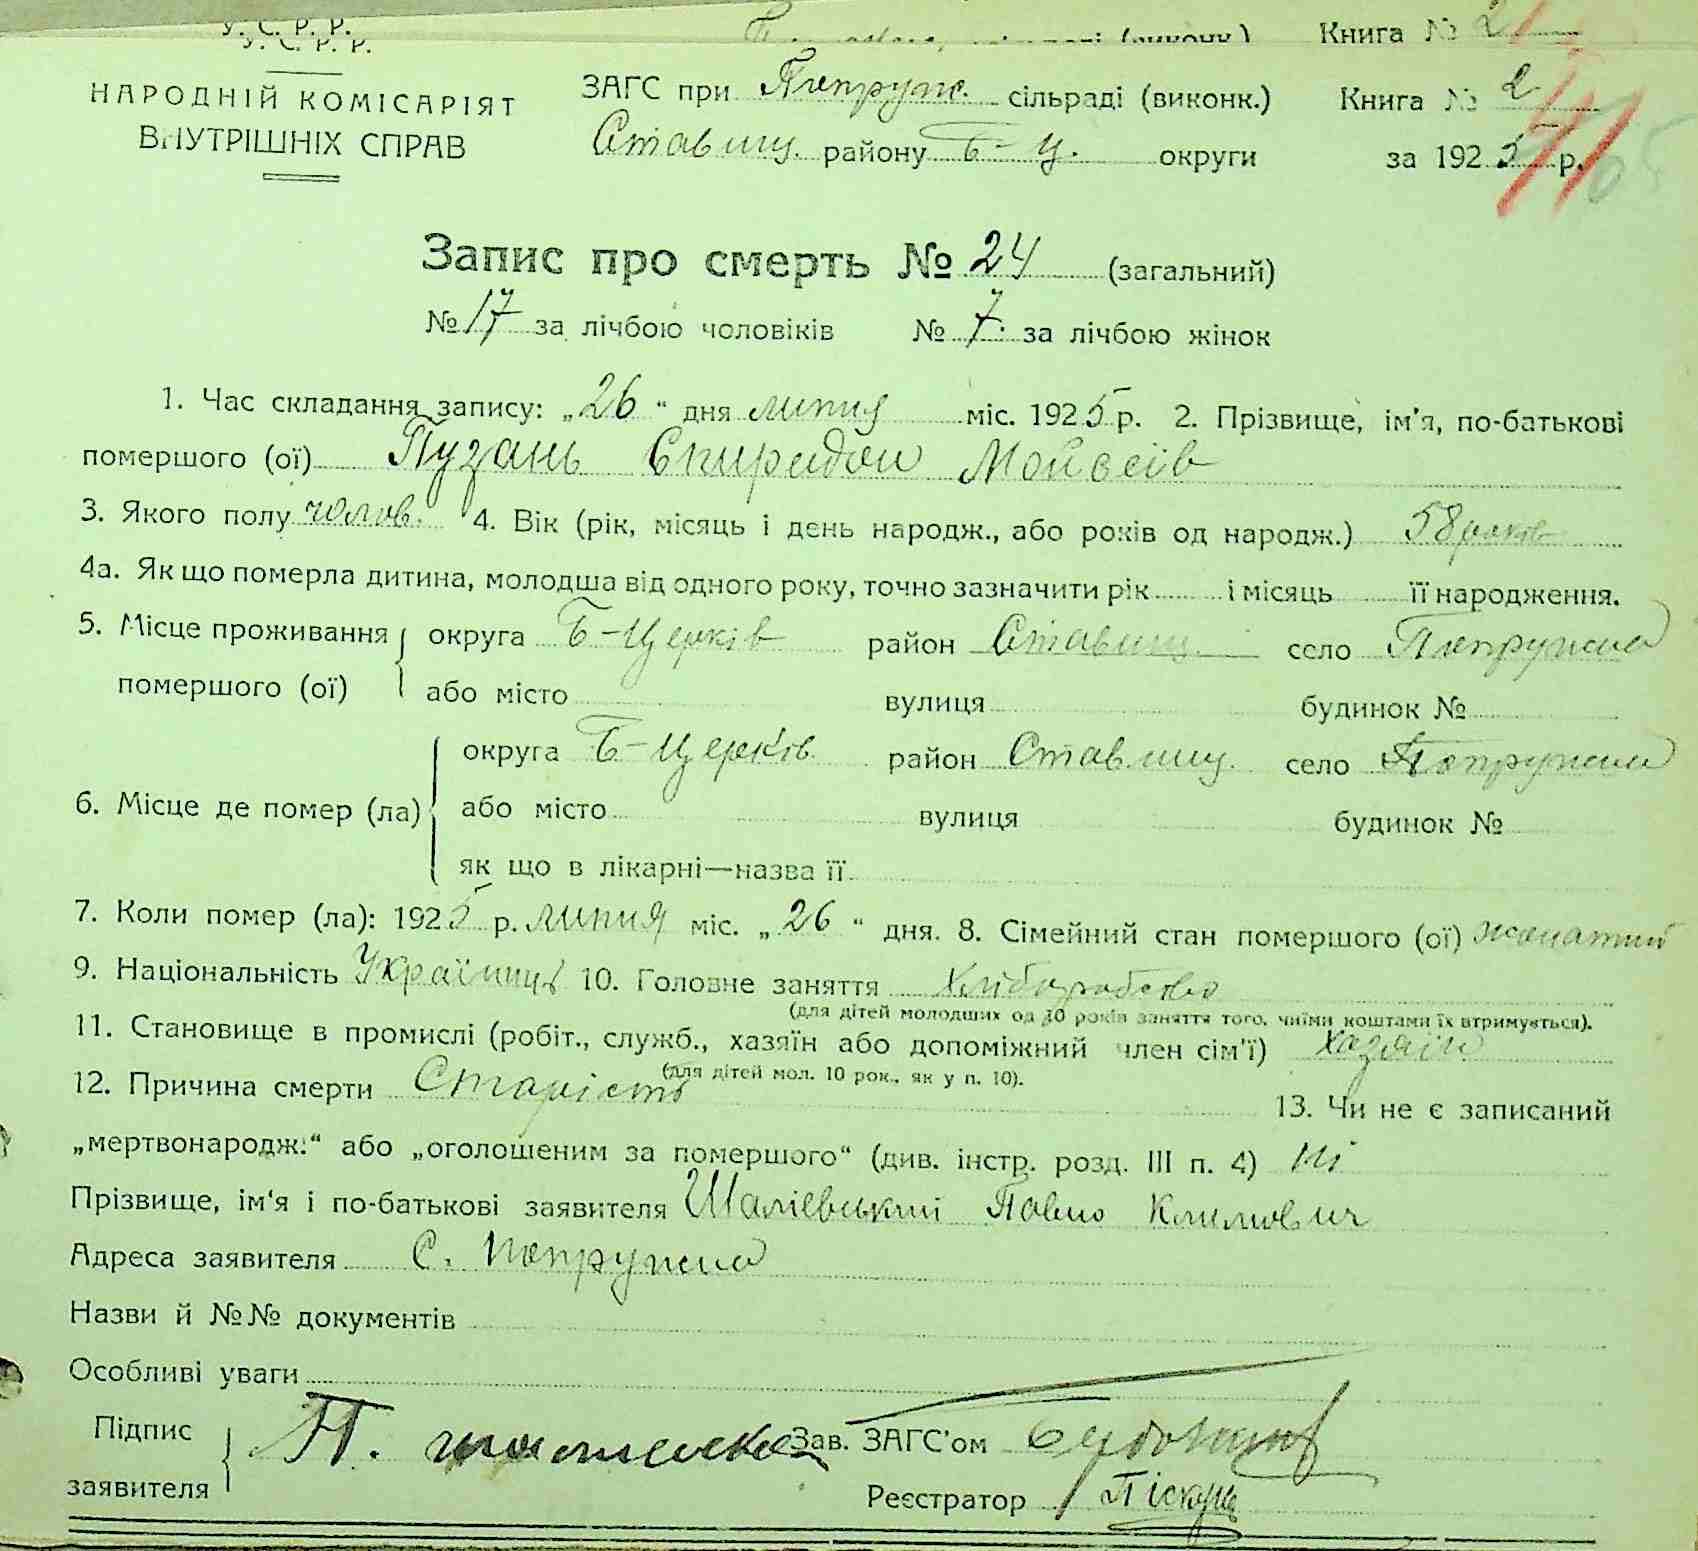 У. С. Р. Р.
Книга № 2
У. С. Р. Р.
НАРОДНІЙ КОМІСАРІЯТ
ВНУТРІШНІХ СПРАВ
ЗАГС при Попруж. сільраді (виконк.) Книга № 2
Ставищ. району Б-Ц. округи за 1925 р.
Запис про смерть № 24 (загальний)
№ 17 за лічбою чоловіків № 7. за лічбою жінок
1. Час складання запису: „26“ дня липня міс. 1925 р. 2. Прізвище, ім'я, по-батькові
помершого (ої) Пузань Спиридон Мойсеїв
3. Якого полу чолов. 4. Вік (рік, місяць і день народж., або років од народж.) 58 років
4а. Як що померла дитина, молодша від одного року, точно зазначити рік і місяць її народження.
5. Місце проживання помершого (ої) округа Б-Церків район Ставищ. село Попружна
або місто вулиця будинок №
6. Місце де помер (ла) округа Б-Церків район Ставищ. село Попружна
або місто вулиця будинок №
як що в лікарні—назва її
7. Коли помер (ла): 1925 р. липня міс. „26“ дня. 8. Сімейний стан помершого (ої) жонатий
9. Національність Українець 10. Головне заняття Хліборобство
(для дітей молодших од 10 років заняття того, чиїми коштами їх втримується).
11. Становище в промислі (робіт., служб., хазяїн або допоміжний член сім'ї) хазяїн
(для дітей мол. 10 рок., як у п. 10).
12. Причина смерти Старість 13. Чи не є записаний
„мертвонародж.“ або „оголошеним за помершого“ (див. інстр. розд. III п. 4) ні
Прізвище, ім'я і по-батькові заявителя Шаліевський Павло Климович
Адреса заявителя С. Попружна
Назви й №№ документів
Особливі уваги
Підпис заявителя П.
Зав. ЗАГС'ом
Реєстратор Піскун